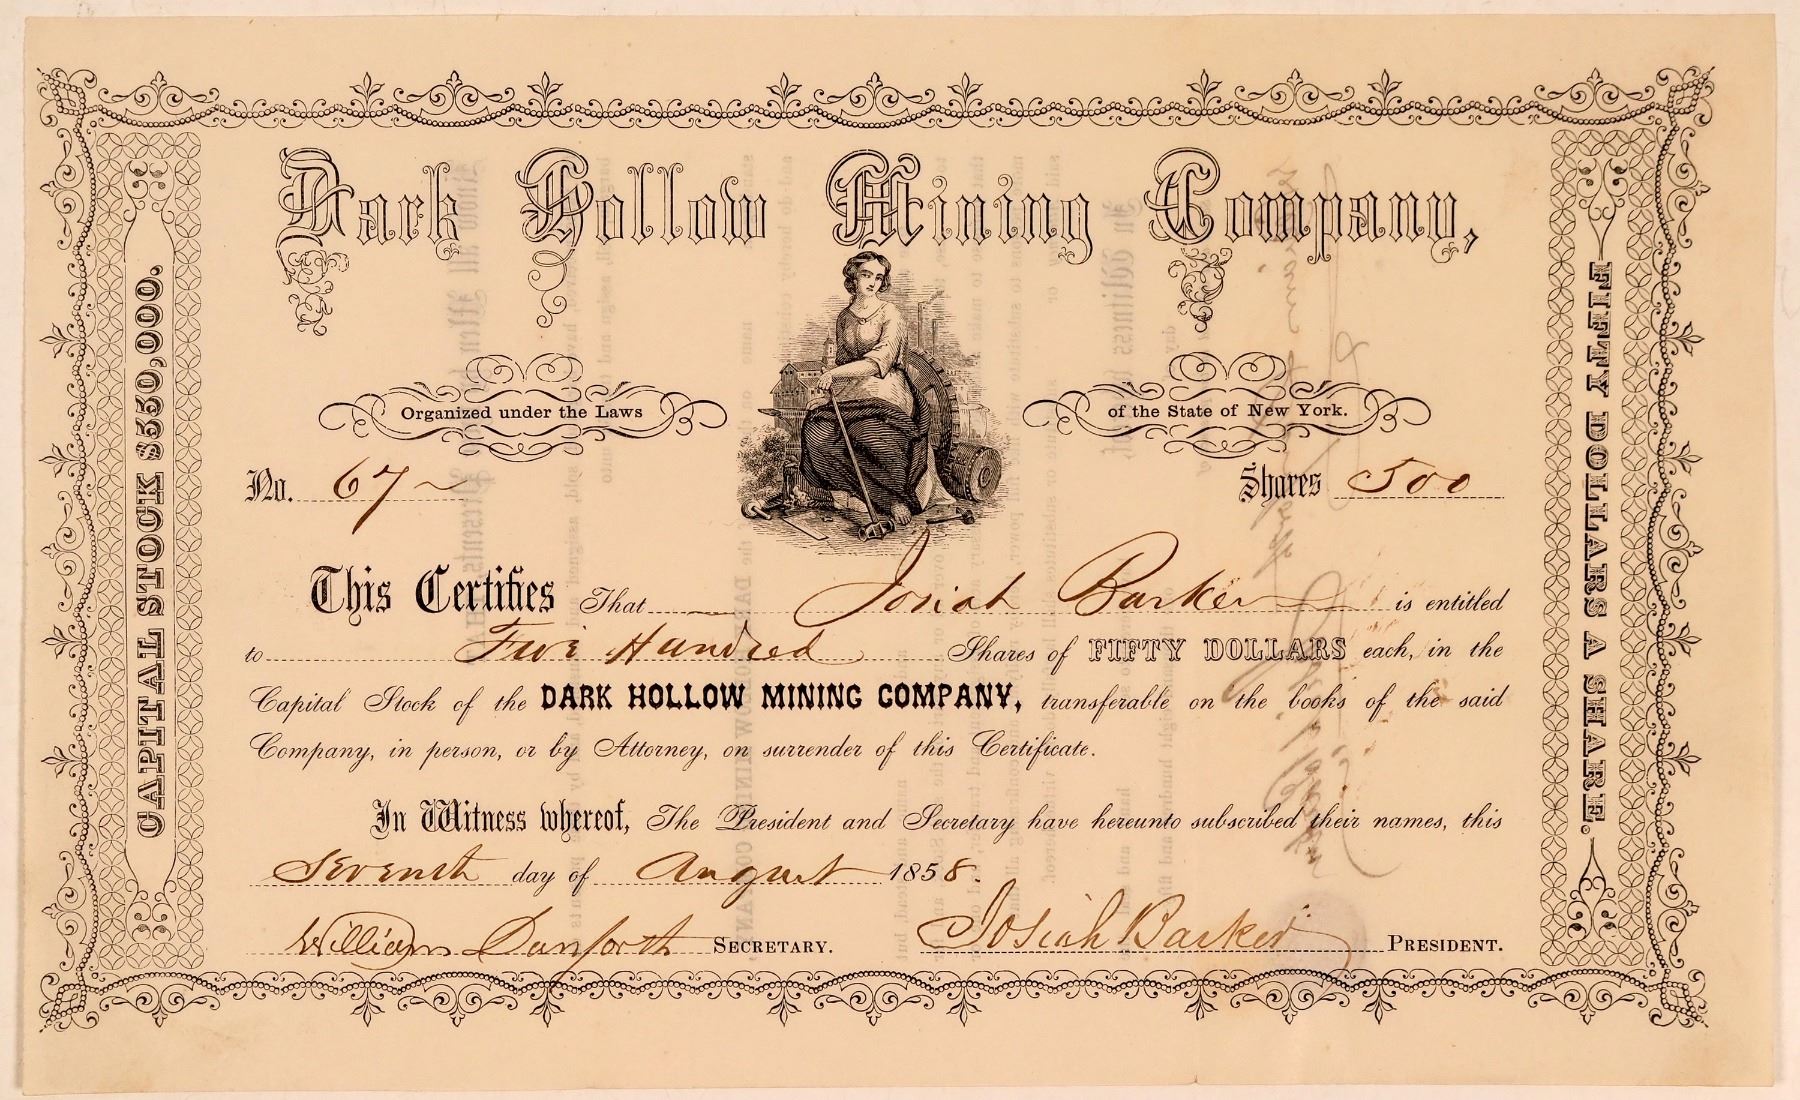 Dark Hollow Mining Company,
CAPITAL STOCK $550,000.
FIFTY DOLLARS A SHARE.
Organized under the Laws
of the State of New York.
No. 67
Shares 500
This Certifies That Josiah Barker is entitled
to Five Hundred Shares of FIFTY DOLLARS each, in the
Capital Stock of the DARK HOLLOW MINING COMPANY, transferable on the books of the said
Company, in person, or by Attorney, on surrender of this Certificate.
In Witness whereof, The President and Secretary have hereunto subscribed their names, this
Seventh day of August 1858.
William Danforth SECRETARY.
Josiah Barker PRESIDENT.